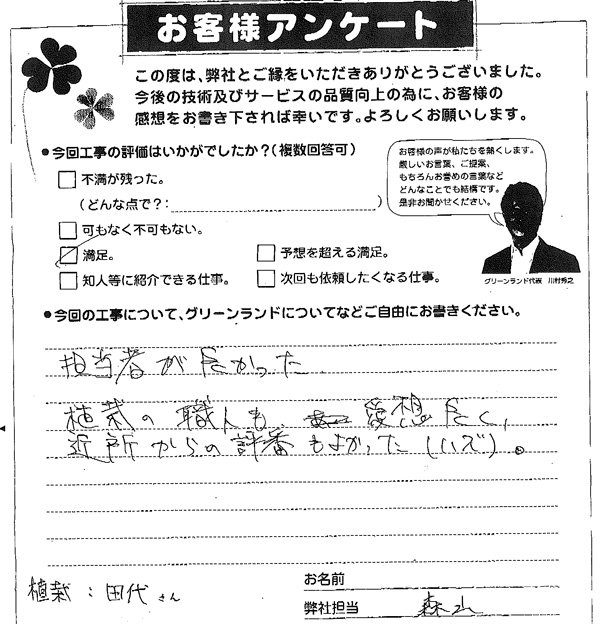 お客様アンケート
この度は、弊社とご縁をいただきありがとうございました。
今後の技術及びサービスの品質向上の為に、お客様の
感想をお書き下されば幸いです。よろしくお願いします。
●今回工事の評価はいかがでしたか？(複数回答可)
お客様の声が私たちを熱くします。
厳しいお言葉、ご提案、
もちろんお誉めの言葉など
どんなことでも結構です。
是非お聞かせください。
不満が残った。
(どんな点で？: )
可もなく不可もない。
満足。
予想を超える満足。
知人等に紹介できる仕事。
次回も依頼したくなる仕事。
グリーンランド代表 川村秀之
●今回の工事について、グリーンランドについてなどご自由にお書きください。
担当者が良かった
植栽の職人も 愛想良く、
近所からの評番もよかった(ハズ)。
植栽：田代さん
お名前
弊社担当 森山